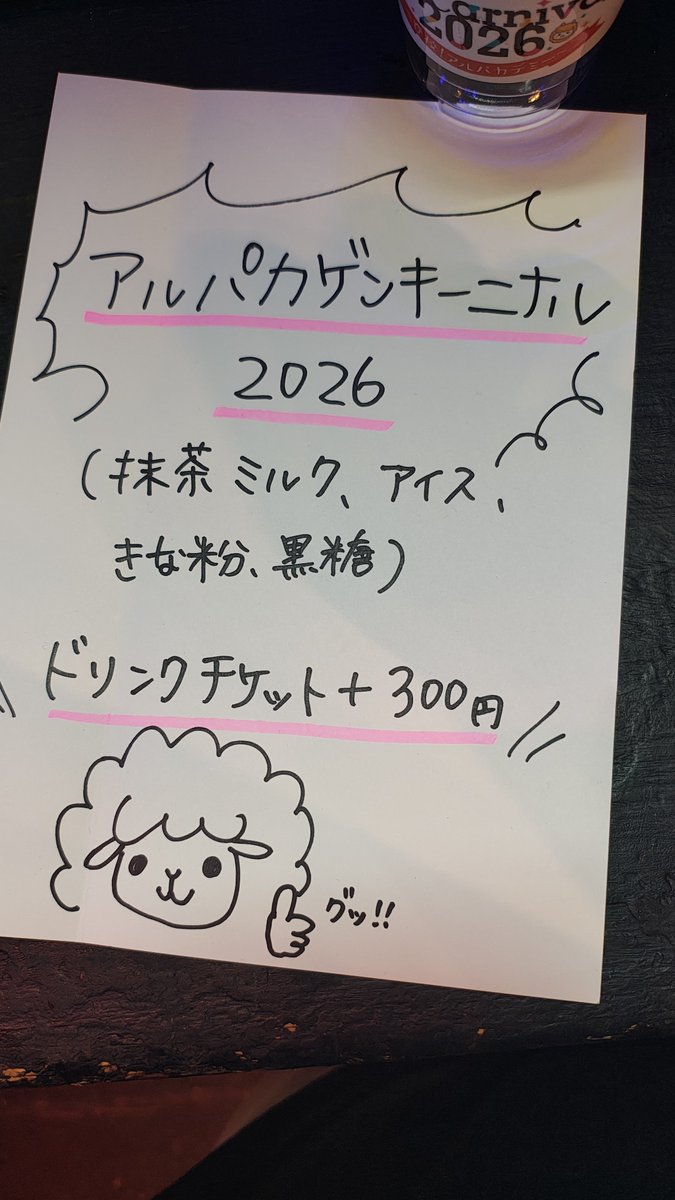 Carniva
2026
アルパカゲンキーニナル
2026
(抹茶ミルク、アイス、
きな粉、黒糖)
ドリンクチケット+300円
グッ!!